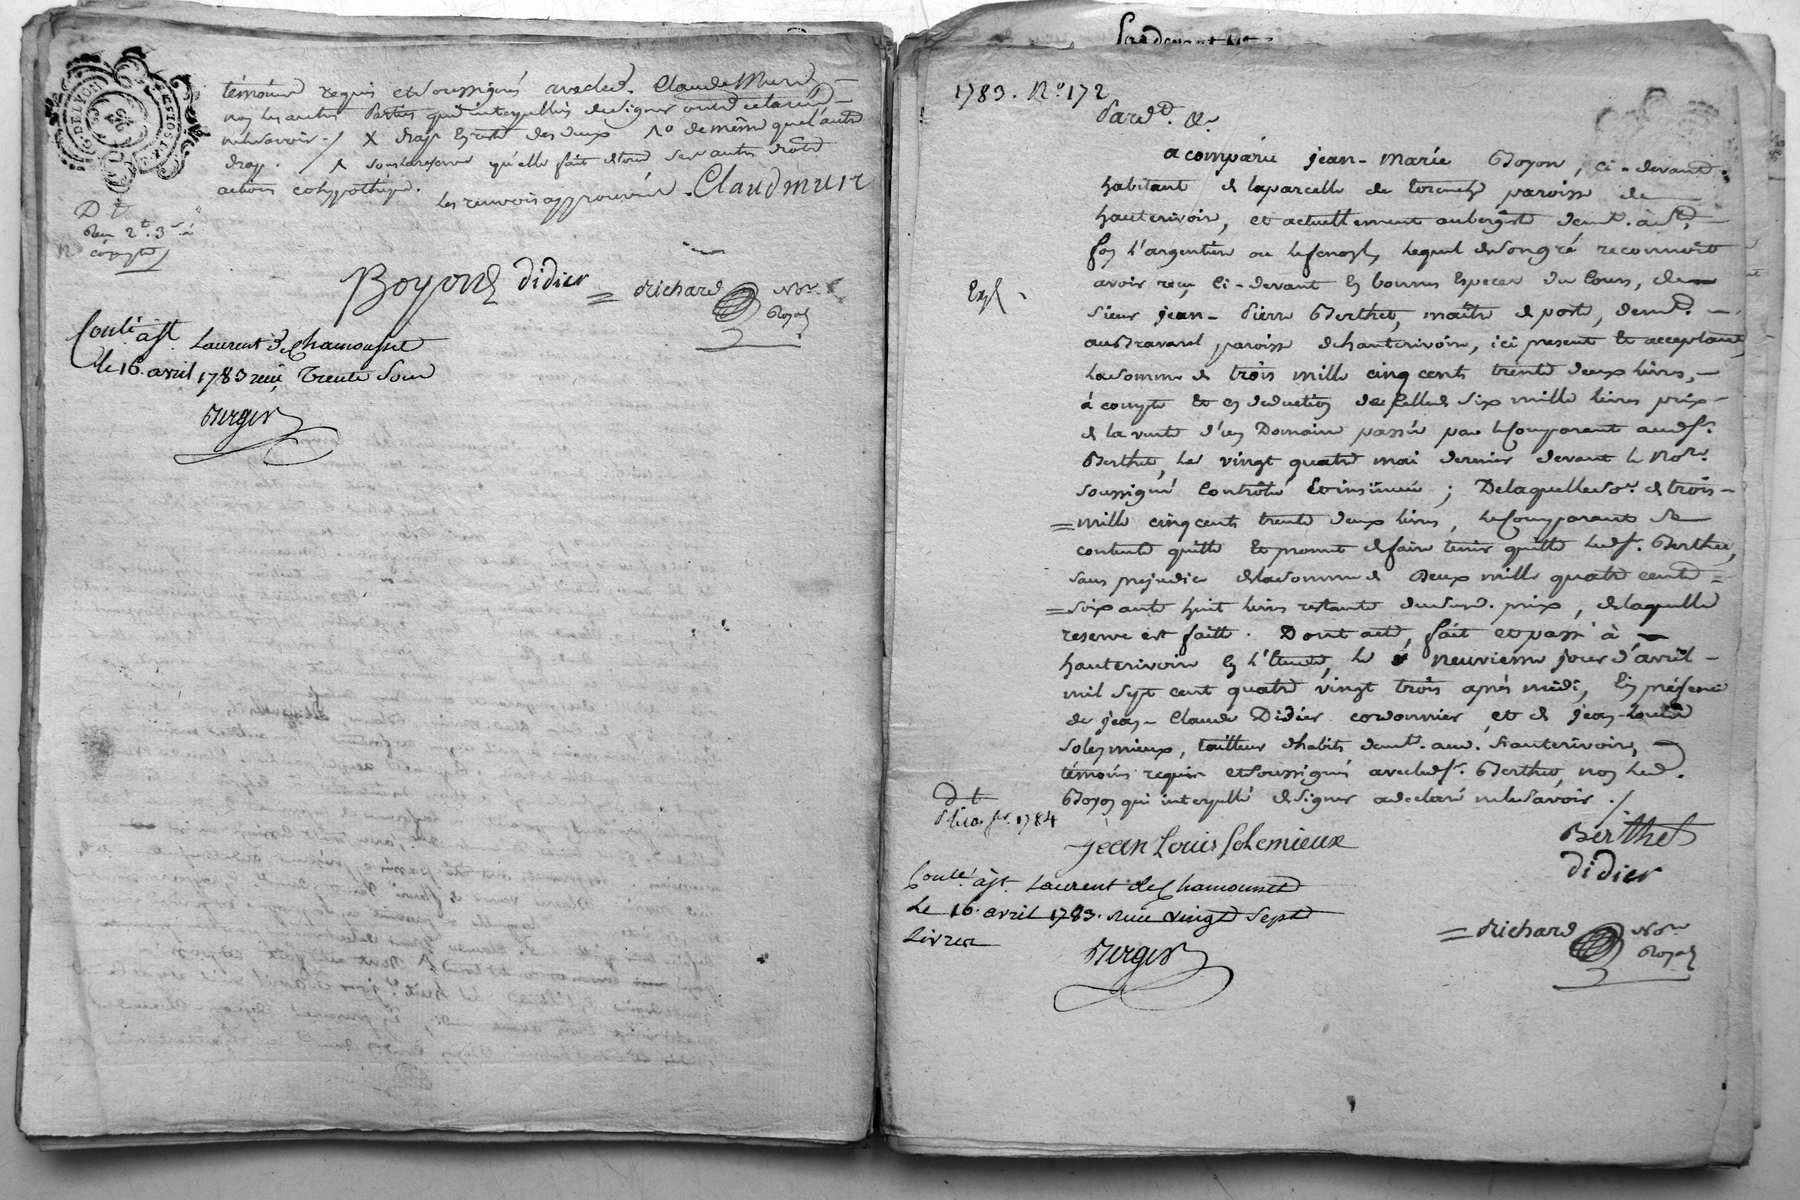 témoins requis et soussignés avec led. Claude Mure
non les autres parties que interpellées de signer ont declaré
ne le savoir ./ X drap En reste des deux 1o de même que l'autre
drap. X sous la reserve qu'elle fait de tous ses autres droits
actions et hypotheque.
les renvois approuvés. Claud muir
G. DE LYON
D t
2t. 3s.
Boyond didier = Richard Nore.
Royal
Conlé. à St. Laurent de Chamousset
le 16. avril 1783 reçu Trente Sous
Berger
Pardevant
1783. No. 172
Pard. &.
a comparu jean-marie Boyon, ci-devant
habitant de la parcelle de paroisse de
hauterivoir, et actuellement aubergiste demt. à Ste.
foy l'argentiere lequel de son gré reconnoit
avoir reçu Ci-devant En bonnes Especes du Cours, de
Sieur jean-Pierre Berthet, maitre de poste, demt.
au Bravard paroisse de hauterivoire, ici present Et acceptant,
la somme de trois mille cinq cent trente deux livres,
à compte Et en deduction de Celle de Six mille livres prix
de la vente d'un Domaine passée par le Comparant audt Sr.
Berthet, le vingt quatre mai dernier devant le Nore.
soussigné Contrôlé Et insinué ; De laquelle so. de trois
=mille cinq cents trente deux livres, le Comparant se
contente quitte Et promet de faire tenir quitte led. Sr. Berthet,
sans prejudice de la somme de Deux mille quatre cents
=soixante huit livres restante dudit. prix, de laquelle
reserve est faitte. Dont acte, fait et passé à
hauterivoire En l'Etude, le neuvieme jour d'avril
mil sept cent quatre vingt trois après midi, En présence
de jean-Claude Didier cordonnier, et de jean-Louis
Solemieux, tailleur d'habits demt. aud. hauterivoire,
témoins requis et soussignés avec led. Sr. Berthet, non led.
Boyon qui interpellé de signer a declaré ne le savoir ./
D t
1784
jean Louis Solemieux Berthet
didier
Conle. à St. Laurent de Chamousset
Le 16. avril 1783. reçu vingt Sept
Livres
Berger
= Richard Nore
Royal